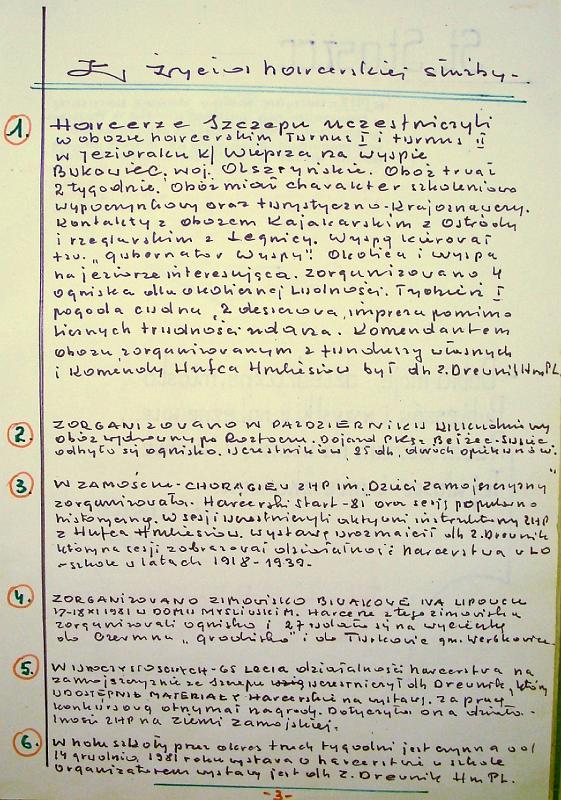 Z życia harcerskiej służby -
1. Harcerze Szczepu uczestniczyli
w obozie harcerskim turnus I i turnus II
w Jezioraku k/ Wieprza na wyspie
Bukowiec, woj. Olsztyńskie. Obóz trwał
2 tygodnie. Obóz miał charakter szkoleniowo
wypoczynkowy oraz turystyczno-krajoznawczy.
Kontakty z obozem Kajakarskim z Ostródy
i żeglarskim z Legnicy. Wyspą kierował
tzw. "gubernator Wyspy". Okolica i wyspa
na jeziorze interesująca. Zorganizowano 4
ogniska dla okolicznej ludności. Tydzień I
pogoda cudna, 2 deszczowa, impreza pomimo
licznych trudności udana. Komendantem
obozu zorganizowanym z funduszy własnych
i Komendy Hufca Hrubieszów był dh Z. Drewnik Hm PL.
2. ZORGANIZOWANO W PAŹDZIERNIKU
obóz wędrowny po Roztoczu. Dojazd PKS z Bełżec-Susiec
odbyło się ognisko. Uczestników 25 dh, dwóch opiekunów.
3. W ZAMOŚCIU - CHORĄGIEW ZHP im. Dzieci Zamojszczyzny
zorganizowała "Harcerski Start-81" oraz sesję popularno
historyczną. W sesji uczestniczyli aktywni instruktorzy ZHP
z Hufca Hrubieszów. Wystawę urozmaicił dh Z. Drewnik
który na sesji zobrazował działalność harcerstwa w LO
- szkole w latach 1918-1939.
4. ZORGANIZOWANO ZIMOWISKO BIWAKOWE NA LIPOWCU
17-18 XI 1981 W DOMU MYŚLIWSKIM. Harcerze z tego zimowiska
zorganizowali ognisko i 27 udało się na wycieczkę
do Czermna "grodzisko" i do Turkowic gm. Werbkowice.
5. W UROCZYSTOŚCIACH - 65 LECIA działalności harcerstwa na
zamojszczyźnie ze Szczepu uczestniczył dh Drewnik, który
UDOSTĘPNIŁ MATERIAŁY Harcerskie na wystawę. Za pracę
konkursową otrzymał nagrodę. Dotyczyło ona działa-
lności ZHP na Ziemi Zamojskiej.
6. W holu szkoły przez okres trzech tygodni jest czynna od
14 grudnia 1981 roku wystawa o harcerstwie w szkole
Organizatorem wystawy jest dh Z. Drewnik Hm PL.
-3-